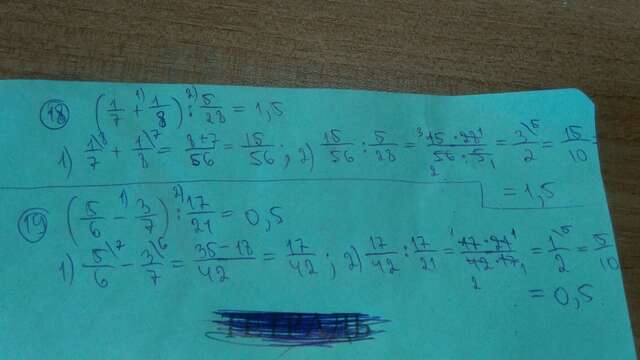 18 (1/7 + 1/8) : 5/28 = 1,5
1) 1\8/7 + 1\7/8 = 8+7/56 = 15/56 ; 2) 15/56 : 5/28 = 15·28/56·5 = 3\5/2 = 15/10 =
= 1,5
19 (5/6 - 3/7) : 17/21 = 0,5
1) 5\7/6 - 3\6/7 = 35-18/42 = 17/42 ; 2) 17/42 : 17/21 = 17·21/42·17 = 1\5/2 = 5/10
= 0,5